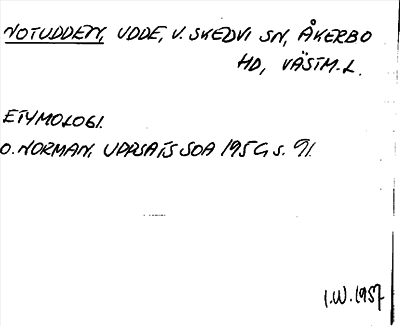 NOTUDDEN, UDDE, V. SKEDVI SN, ÅKERBO
HD, VÄSTM.L.
ETYMOLOGI.
O. NORMAN, UPPSATS SOA 1956 s. 91.
I.W. 1957